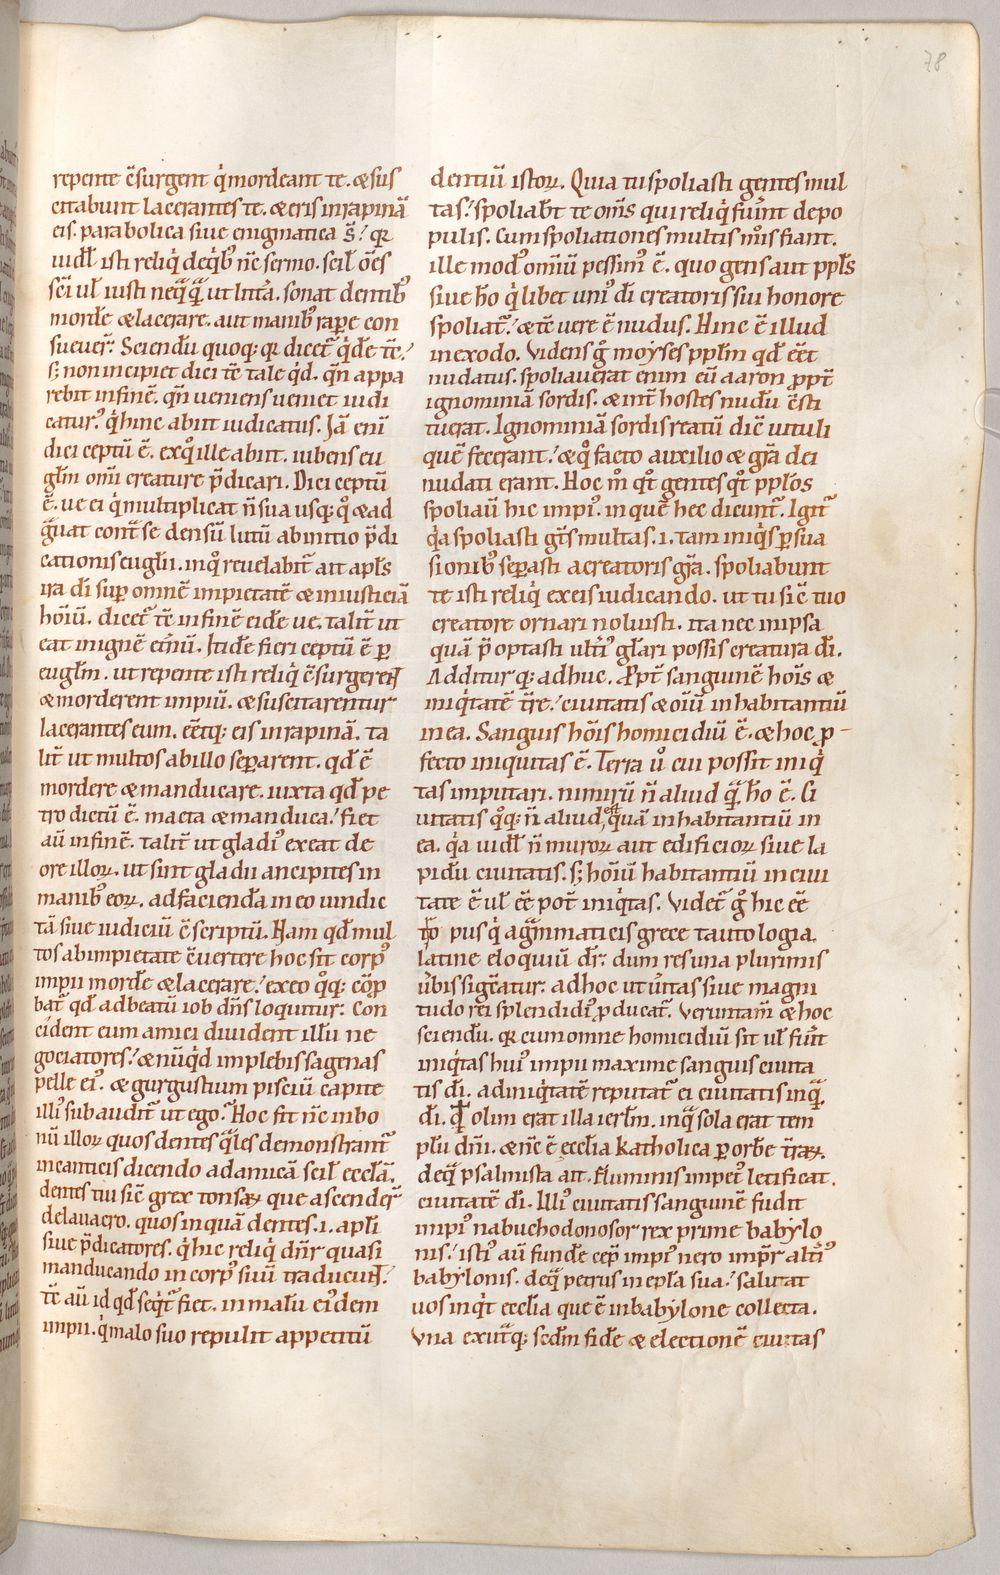 78
repente c̄surgent q̇ mordeant te. & sus
citabunt lacerantes te. & eris in rapinā
eis. parabolica siue enigmatica s̄. qꝛ
uidel̄ isti reliq̇ deq̇bꝰ n̄c sermo. scil̄ om̄s
sc̄i ul̄ iusti neq̄q̄ ut litt̄a. sonat dentibꝰ
mord̄e & lacerare. aut manibꝰ rap̄e con
sueuer̄. Sciendū quoqꝫ qꝛ dicet̄ q̇d̄e t̄c.
sꝫ non incipiet dici t̄c tale q̇d. qn̄ appa
rebit in finē. qn̄ ueniens ueniet iudi
caturꝰ. q̇ hinc abiit iudicatus. Jā enī
dici ceptū ē. ex qͦ ille abiit. iubens eu
gl̄m om̄i creature p̄dicari. Dici ceptū
ē. ue ei q̇ multiplicat n̄ sua usqꝫ qͦ & ad
g̈uat cont̄ se densū lutū ab initio p̄di
cationis eugl̄ii. in qͦ reuelabit̄ ait apl̄s
ira dī sup̄ omnē impietatē & iniusticiā
hōiū. dicet̄ t̄c in finē eid̄e ue. talit̄ ut
eat in ignē et̄nū. Itid̄e fieri ceptū ē ꝑ
eugl̄m. ut repente isti reliq̇ c̄surgerent
& morderent impiū. & suscitarentur
lacerantes eum. eēt̄qꝫ eis in rapinā. ta
lit̄ ut multos ab illo sepꝑarent. qd̄ ē
mordere & manducare. iuxta qd̄ pe
tro dictū ē. macta & manduca. fiet
aū in finē. talit̄ ut gladiꝰ exeat de
ore illoꝝ. ut sint gladii ancipites in
manibꝰ eoꝝ. ad faciendā in eo uindic
tā siue iudiciū c̄scriptū. Nam qd̄ mul
tos ab impietate c̄uertere hoc sit corpꝰ
impii mord̄e & lacerare. ex eo qͦqꝫ cōp
bat̄ qd̄ ad beatū iob dn̄s loquitur. Con
cident eum amici diuident illū ne
gociatores. & nūq̇d implebis sagenas
pelle eiꝰ. & gurgustium pisciū capite
illiꝰ subaudit̄ ut ego. Hoc fit n̄c in bo
nū illoꝝ quos dentes q̄les demonstrant̄
in canticis dicendo ad amicā scil̄ eccl̄ā.
dentes tui sic̄ grex tonsaꝝ que ascender̄
de lauacro. quos in quā dentes. i. apl̄i
siue p̄dicatores. q̇ hic reliq̇ dn̄r quasi
manducando in corpꝰ suū traducunt.
t̄c aū id qd̄ seq̇t̄ fiet. in malū eiꝰdem
impii. q̇ malo suo repulit appetitū
dentiū istoꝝ. Quia tu spoliasti gentes mul
tas. spoliabt̄ te om̄s qui reliq̇ fuīnt de po
pulis. Cum spoliationes multis mͦis fiant.
ille modꝰ omniū pessimꝰ ē. quo gens aut pp̄l̄s
siue h̄o q̇libet uniꝰ dī creatoris sui honore
spoliat̄. & t̄c uere ē nudus. Hinc ē illud
in exodo. Videns g̊ moyses pp̄l̄m qd̄ eēt
nudatus. spoliauerat enim eū aaron ꝓpt̄
ignominiā sordis. & int̄ hostes nudū c̄sti
tuerat. Ignominiā sordis reatū dic̄ uituli
quē fecerant. & qͦ facto auxilio & gr̄a dei
nudati erant. Hoc m̊ qͦt gentes qͦt pp̄los
spoliauı̄ hic impiꝰ. in quē hec dicunt̄. Igit̄
q̇a spoliasti gt̄s multas. i. tam iniq̇s ꝑsua
sionibꝰ sepꝑasti a creatoris gr̄a. spoliabunt
te isti reliq̇ ex eis iudicando. ut tu sic̄ tuo
creatore ornari noluisti. ita nec in ipsa
quā p̄optasti ult̄iꝰ gl̄ari possis creatura dī.
Additur qꝫ adhuc. Ꝓpt̄ sanguinē hōis &
iniq̇tatē tr̄e. ciuitatis & oīū inhabitantiū
in ea. Sanguis hōis homicidiū ē. & hoc ꝓ
fecto iniquitas ē. Terra ů cui possit iniq̇
tas imputari. nimirū n̄ aliud q̄ h̄o ē. Ci
uitatis qͦqꝫ n̄ aliud quā inhabitantiū in
ea. q̇a uidel̄ n̄ muroꝝ aut edificioꝝ siue la
pidū ciuitatis. sꝫ hōiū habitantiū in ciui
tate ē ul̄ eē pot̄ iniq̇tas. Videt̄ g̊ hic eē
tͦo pus q̇ a g̈mmaticis grece tautologia.
latine eloquiū dr̄. dum res una plurimis
ůbis sig̈tatur. adhoc ut ůitas siue magni
tudo rei splendidiꝰ ꝓducat̄. Veruntam̄ & hoc
sciendū. qꝛ cum omne homicidiū sit ul̄ fuīt
iniq̇tas huiꝰ impii maxime sanguis ciuita
tis dī. ad iniq̇tatē reputat̄ ei ciuitatis inq̄
dī. q̄ olim erat illa ierl̄m. in q̄ sola erat tem
plū dn̄i. & n̄c ē ecclīa katholica ꝑ orbē tr̄aꝝ.
de q̄ psalmista ait. Fluminis impetꝰ letificat
ciuitatē dī. Illiꝰ ciuitatis sanguinē fudit
impiꝰ nabuchodonosor rex prime babylo
nis. istiꝰ aū fund̄e cep̄ impiꝰ nero imp̄r alt̄iꝰ
babylonis. de q̄ petrus in epl̄a sua. salutat
uos inq̇t ecclīa que ē in babylone collecta.
Vna ex ut̄aqꝫ scd̄m fid̄e & electionē ciuitas